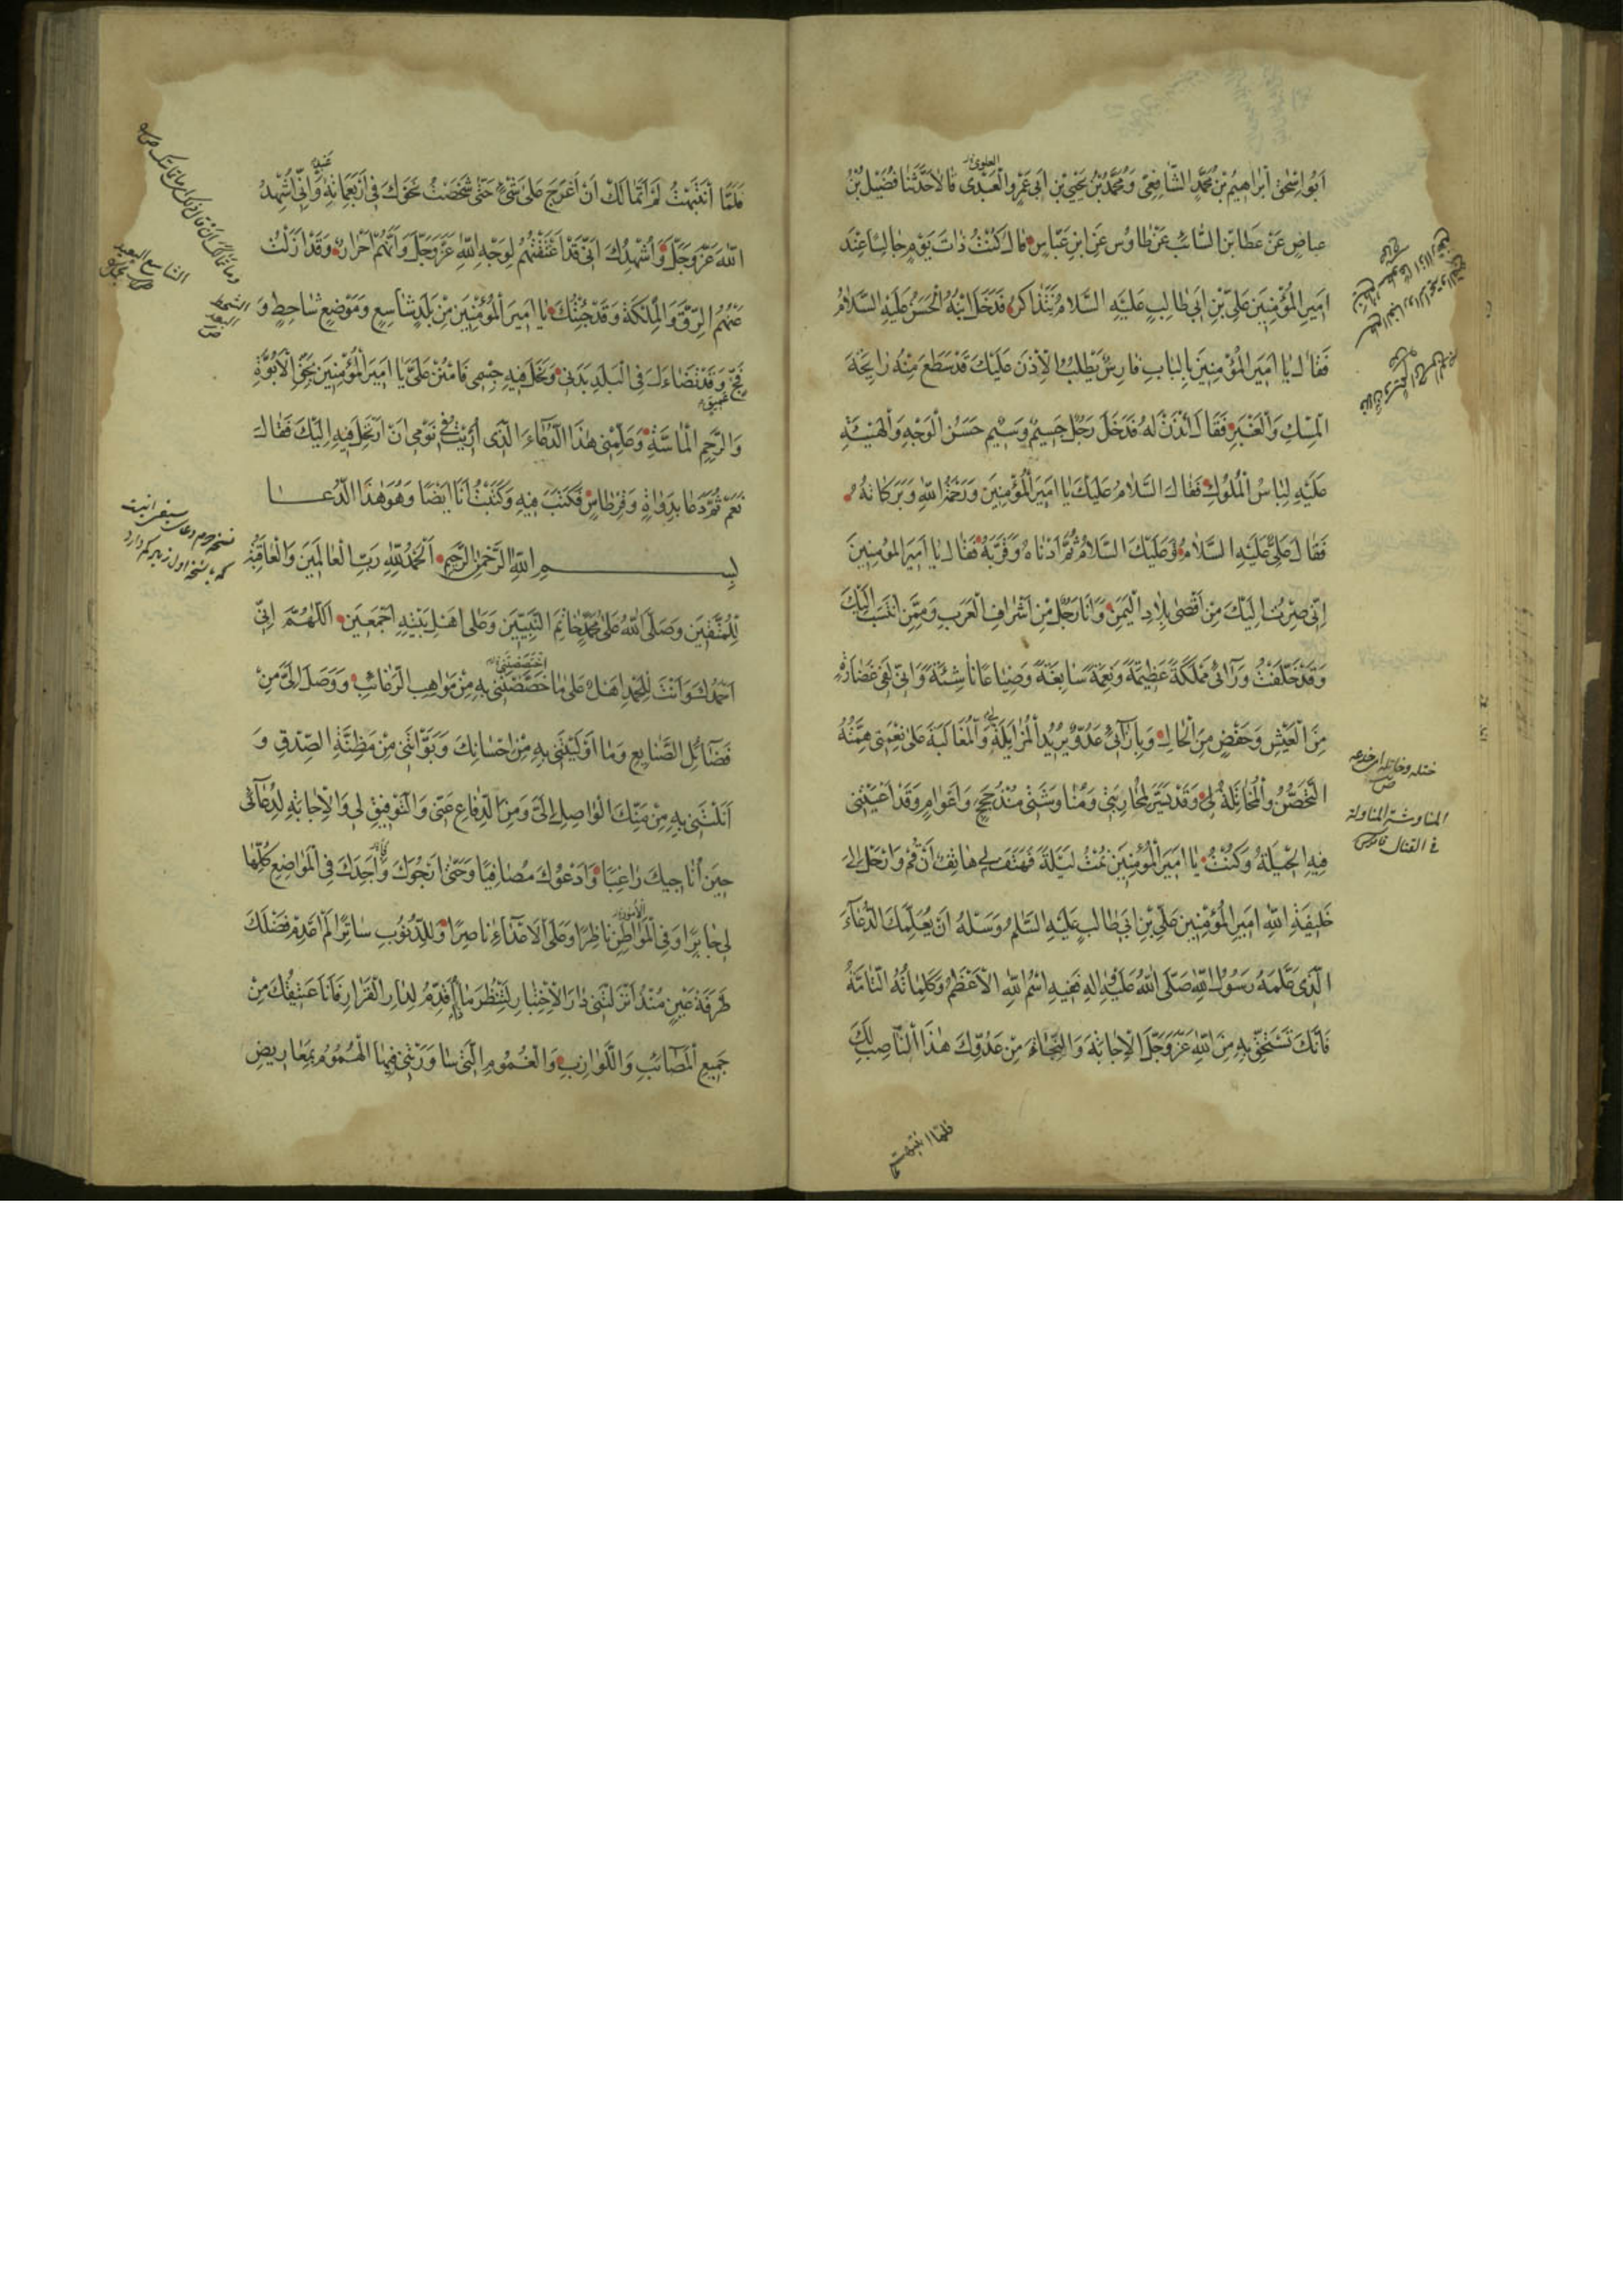 ابو اسحق ابراهيم بن محمد الشافعي ومحمد بن يحيى بن ابي عمرو العبدى قالا حدثنا فضيل بن
العلوى
عياض عن عطا بن السائب عن طاوس عن ابن عباس قال كنت ذات يوم جالسا عند
امير المؤمنين علي بن ابي طالب عليه السلام نتذاكر فدخل ابنه الحسن عليه السلام
فقال يا امير المؤمنين بالباب فارس يطلب الاذن عليك قد سطع منه رايحة
المسك والعنبر فقال ائذن له فدخل رجل جسيم وسيم حسن الوجه والهيئة
عليه لباس الملوك فقال السلام عليك يا امير المؤمنين ورحمة الله وبركاته
فقال علي عليه السلام وعليك السلام ثم ادناه وقربه فقال يا امير المؤمنين
اني صرت اليك من اقصى بلاد اليمن وانا رجل من اشراف العرب وممن انتسب اليك
وقد خلفت ورآئى مملكة عظيمة ونعمة سابغة وضياعا ناشئة واني لفي غضارة
من العيش وخفض من الحال وبازآئي عدو يريد المزايلة والمغالبة على نعمتي همته
التحصن والمخاتلة لي وقد يسر لمحاربتي ومناوشتي منذ حجج واعوام وقد اعيتني
فيه الحيلة وكنت يا امير المؤمنين نمت ليلة فهتف بي هاتف ان قم وارحل الى
خليفة الله امير المؤمنين علي بن ابي طالب عليه السلم وسله ان يعلمك الدعآء
الذى علمه رسول الله صلى الله عليه واله ففيه اسم الله الاعظم وكلماته التامة
فانك تستحق به من الله عز وجل الاجابة والنجاة من عدوك هذا الناصب لك
ختله وخاتله اى خدعه
ص
المناوشة المناولة
فى القتال قاموس
فلما انتبهت
فلما انتبهت لم اتمالك ان اعرج على شئ حتى شخصت نحوك في اربعمائة وانى اشهد
عبد
الله عز وجل واشهدك انى قد اعتقتهم لوجه الله عز وجل وانهم احرار وقد ازلت
عنهم الرق والملكة وقد جئتك يا امير المؤمنين من بلد شاسع وموضع شاحط و
فج وقد تضاءل في البلد بدني ونحل فيه جسمى فامنن على يا امير المؤمنين بحق الابوة
عميق
والرحم الماسة وعلمنى هذا الدعاء الذى اريت في نومى ان ارتحل فيه اليك فقال
نعم ثم دعا بدواة وقرطاس فكتب فيه وكتبت انا ايضا وهو هذا الدعا
بسم الله الرحمن الرحيم الحمد لله رب العالمين والعاقبة
للمتقين وصلى الله على محمد خاتم النبيين وعلى اهل بيته اجمعين اللهم انى
احمدك وانت للحمد اهل على ما خصصتنى به من مواهب الرغائب ووصل الى من
اختصصتنى
فضآئل الصنايع وما اوليتنى به من احسانك وبوأتنى من مظنة الصدق و
انلتنى به من منك الواصل الى ومن الدفاع عنى والتوفيق لى والاجابة لدعآئى
حين اناجيك راغبا وادعوك مصافيا وحتى ارجوك واجدك في المواضع كلها
لى جابرا وفي المواطن ناظرا وعلى الاعدآء ناصرا وللذنوب ساترا لم اعدم فضلك
الامور
طرفة عين منذ انزلتنى دار الاختبار لتنظر ما اقدم لدار القرار فانا عتيقك من
جميع المصائب واللوازب والغموم التى ساورتنى فيها الهموم بمعاريض
الشاسع البعيد
الشحط
البعد
ص
نسخه دوم دعاى سيفى اينست
كه با نسخه اول زير كم دارد